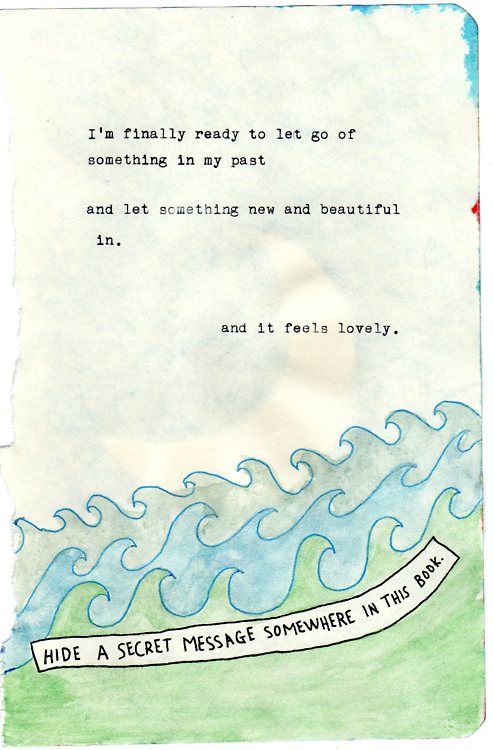 I'm finally ready to let go of
something in my past
and let something new and beautiful
in.
and it feels lovely.
HIDE A SECRET MESSAGE SOMEWHERE IN THIS BOOK.